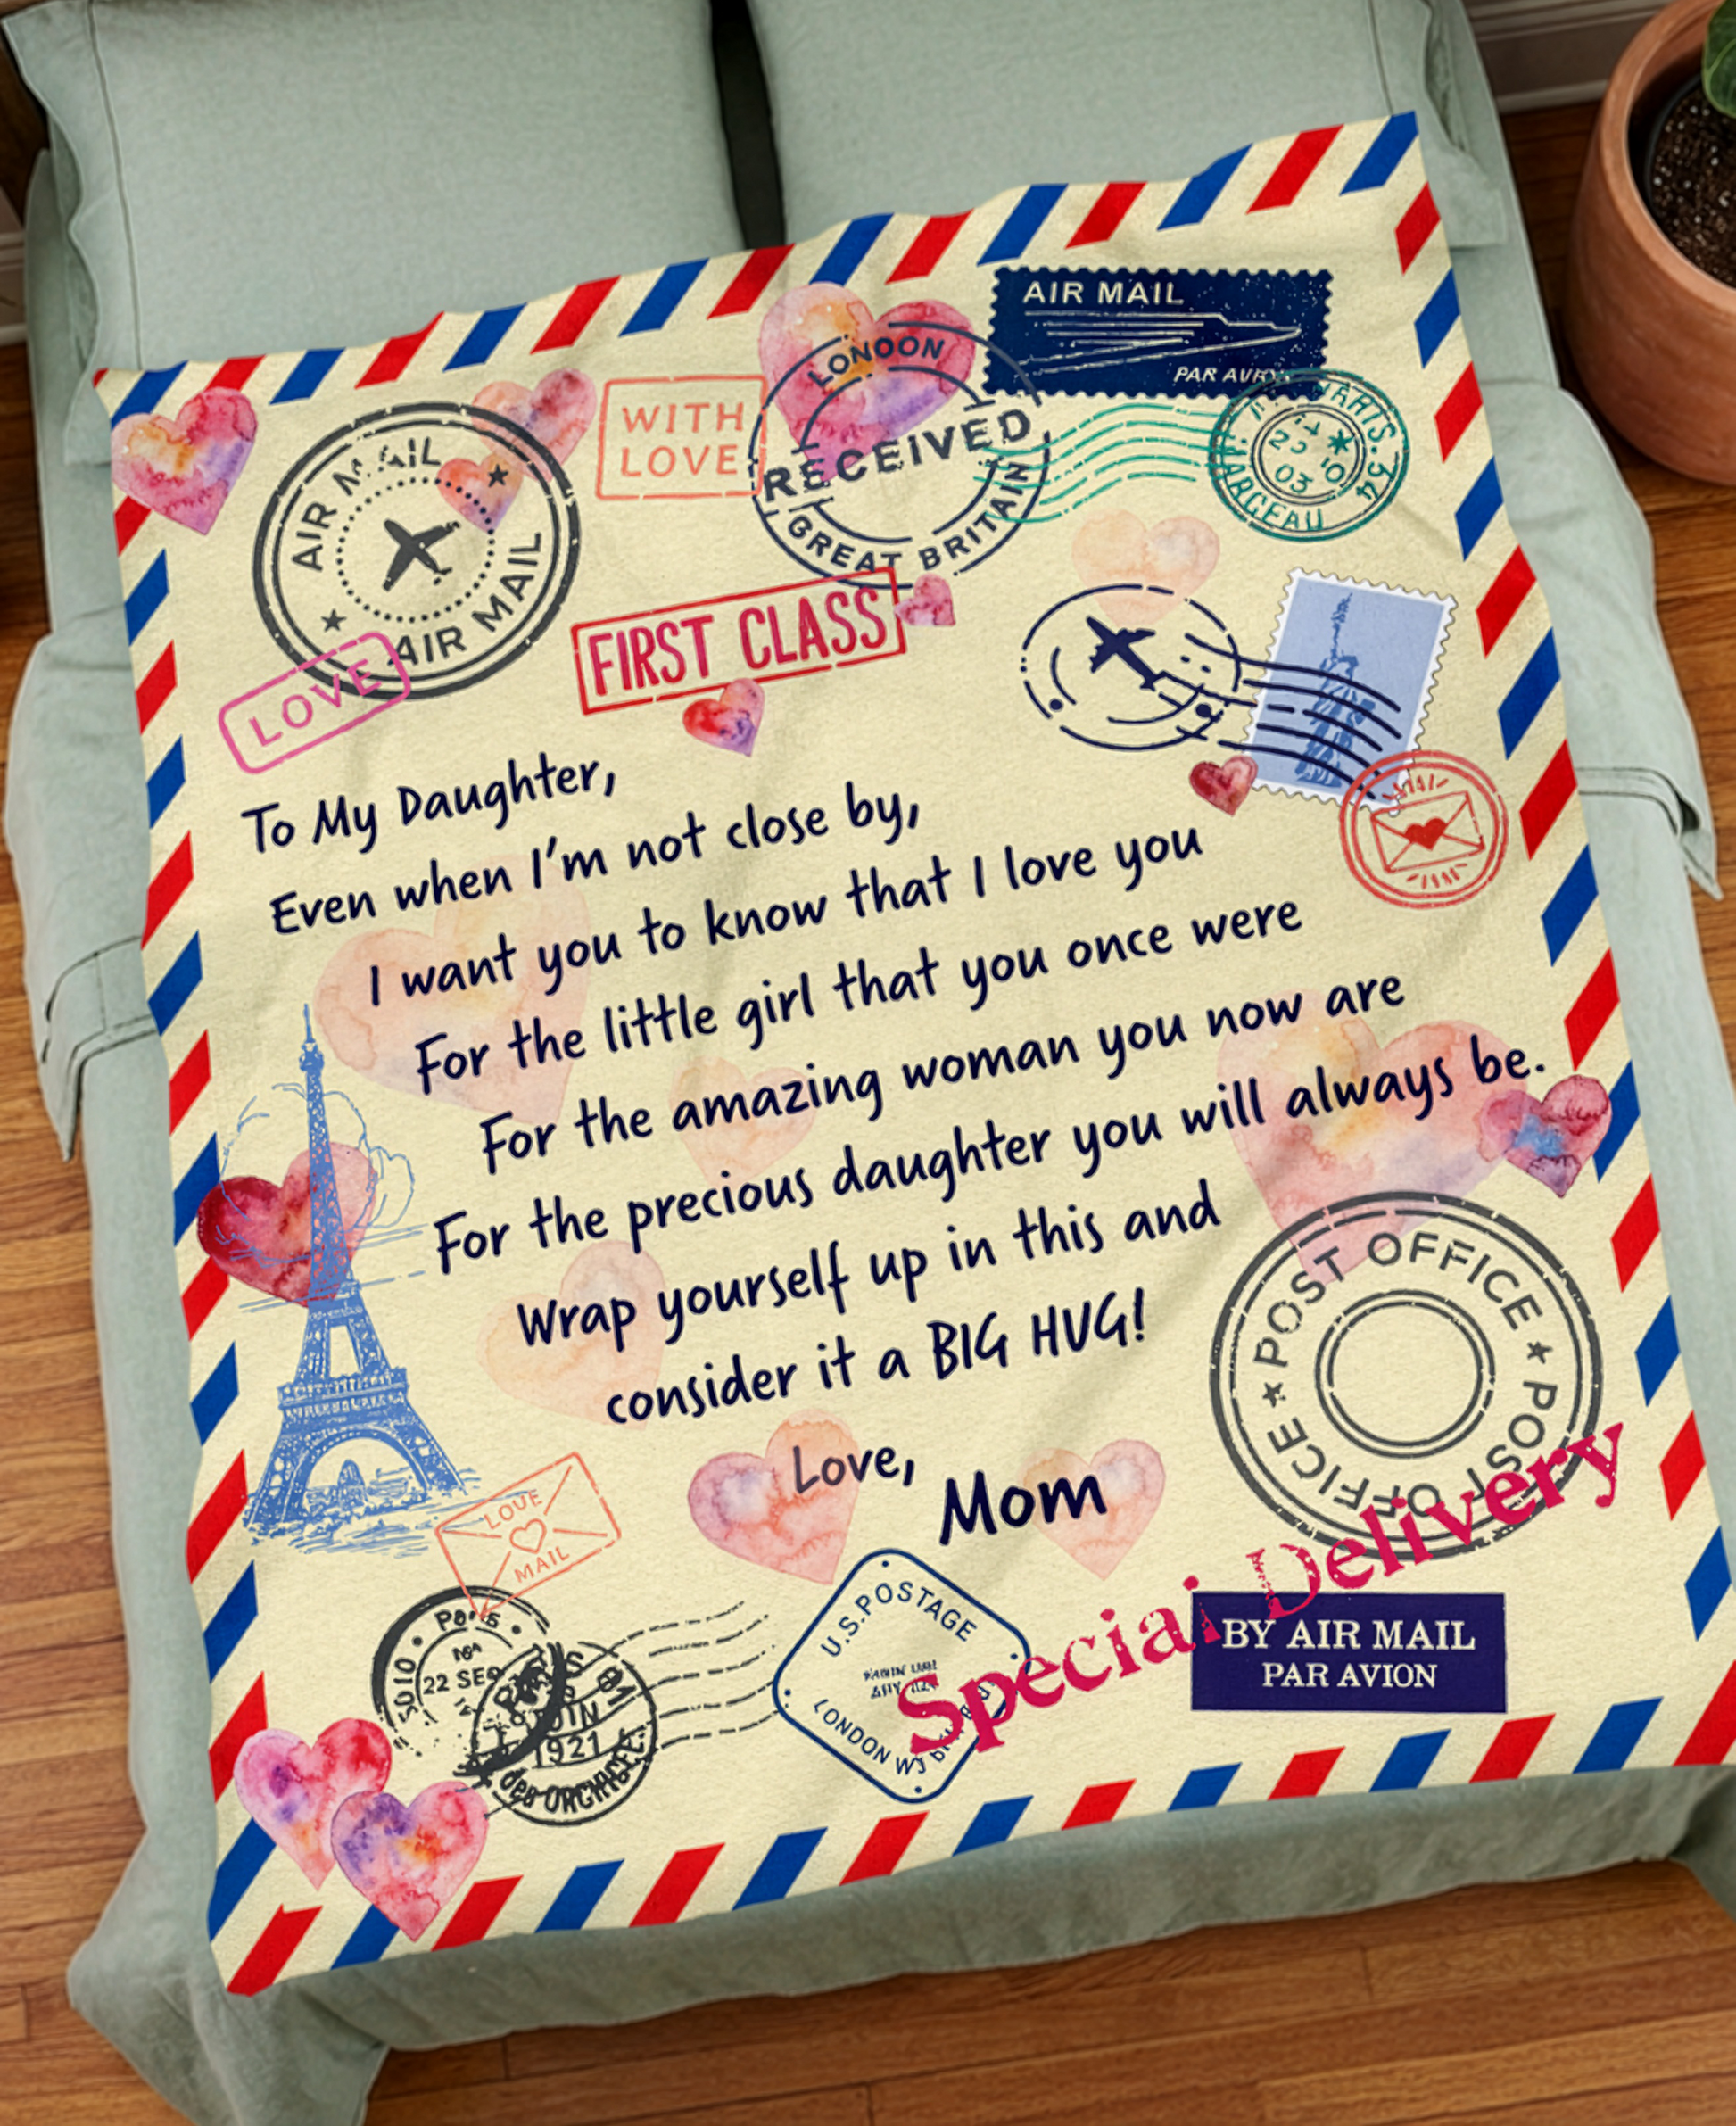 AIR MAIL
PAR AVION
LONDON
RECEIVED
GREAT BRITAIN
WITH
LOVE
AIR MAIL
AIR MAIL
FIRST CLASS
LOVE
To My Daughter,
Even when I'm not close by,
I want you to know that I love you
For the little girl that you once were
For the amazing woman you now are
For the precious daughter you will always be.
Wrap yourself up in this and
consider it a BIG HUG!
Love,
Mom
POST OFFICE
POST OFFICE
LOVE
MAIL
Special Delivery
BY AIR MAIL
PAR AVION
U.S.POSTAGE
LONDON
Paris
22 SEP
1921